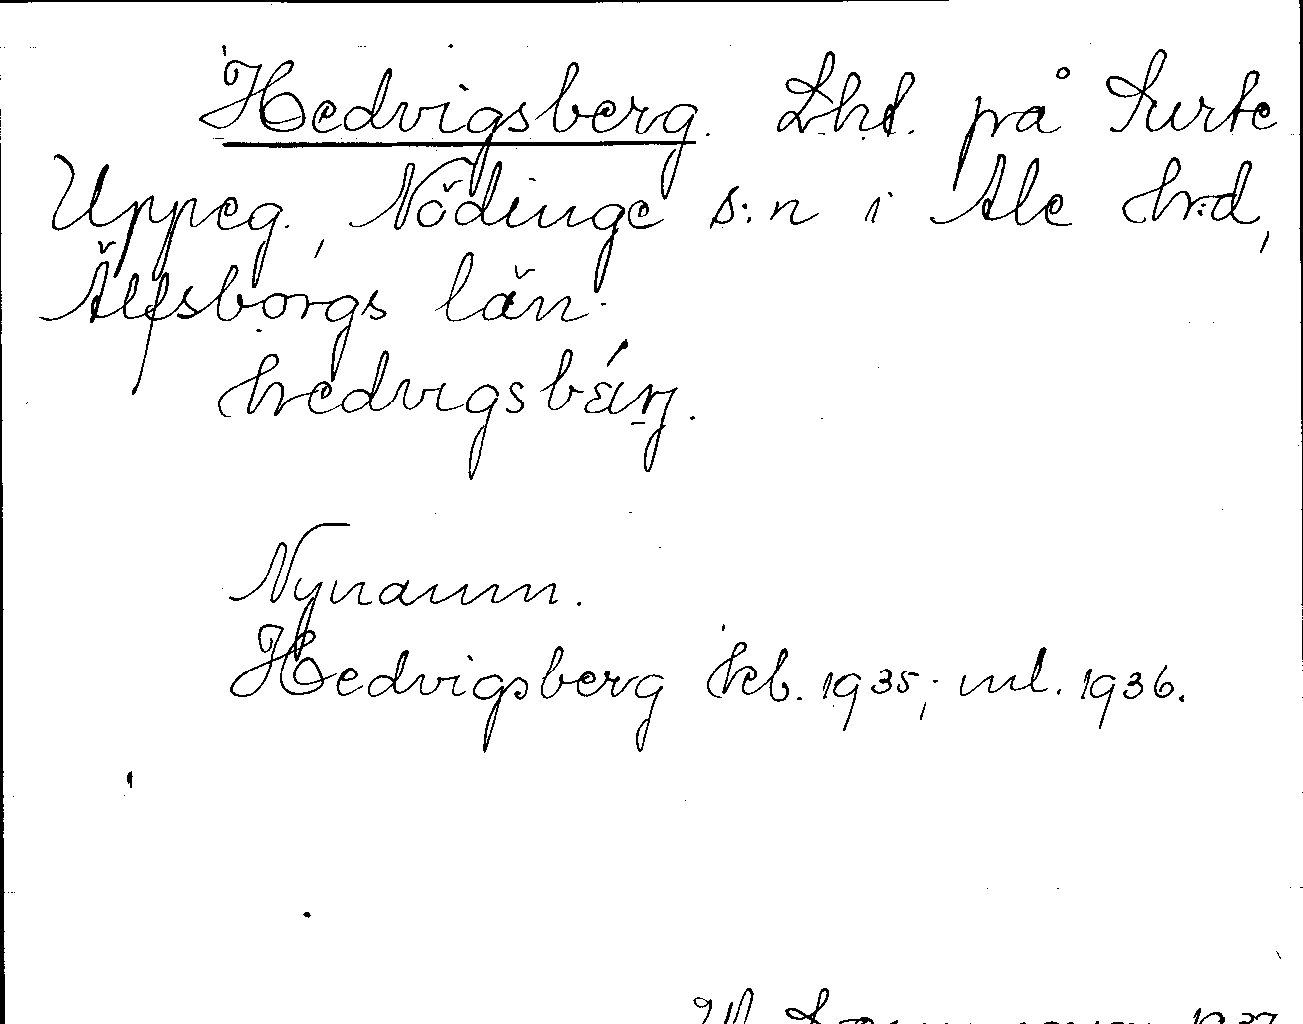 Hedvigsberg. Lht. på Surte
Uppeg., Nödinge s:n i Ale h:d,
Älfsborgs län.
hedvigsbárj.
Nynamn.
Hedvigsberg kb. 1935; ml. 1936.
1937